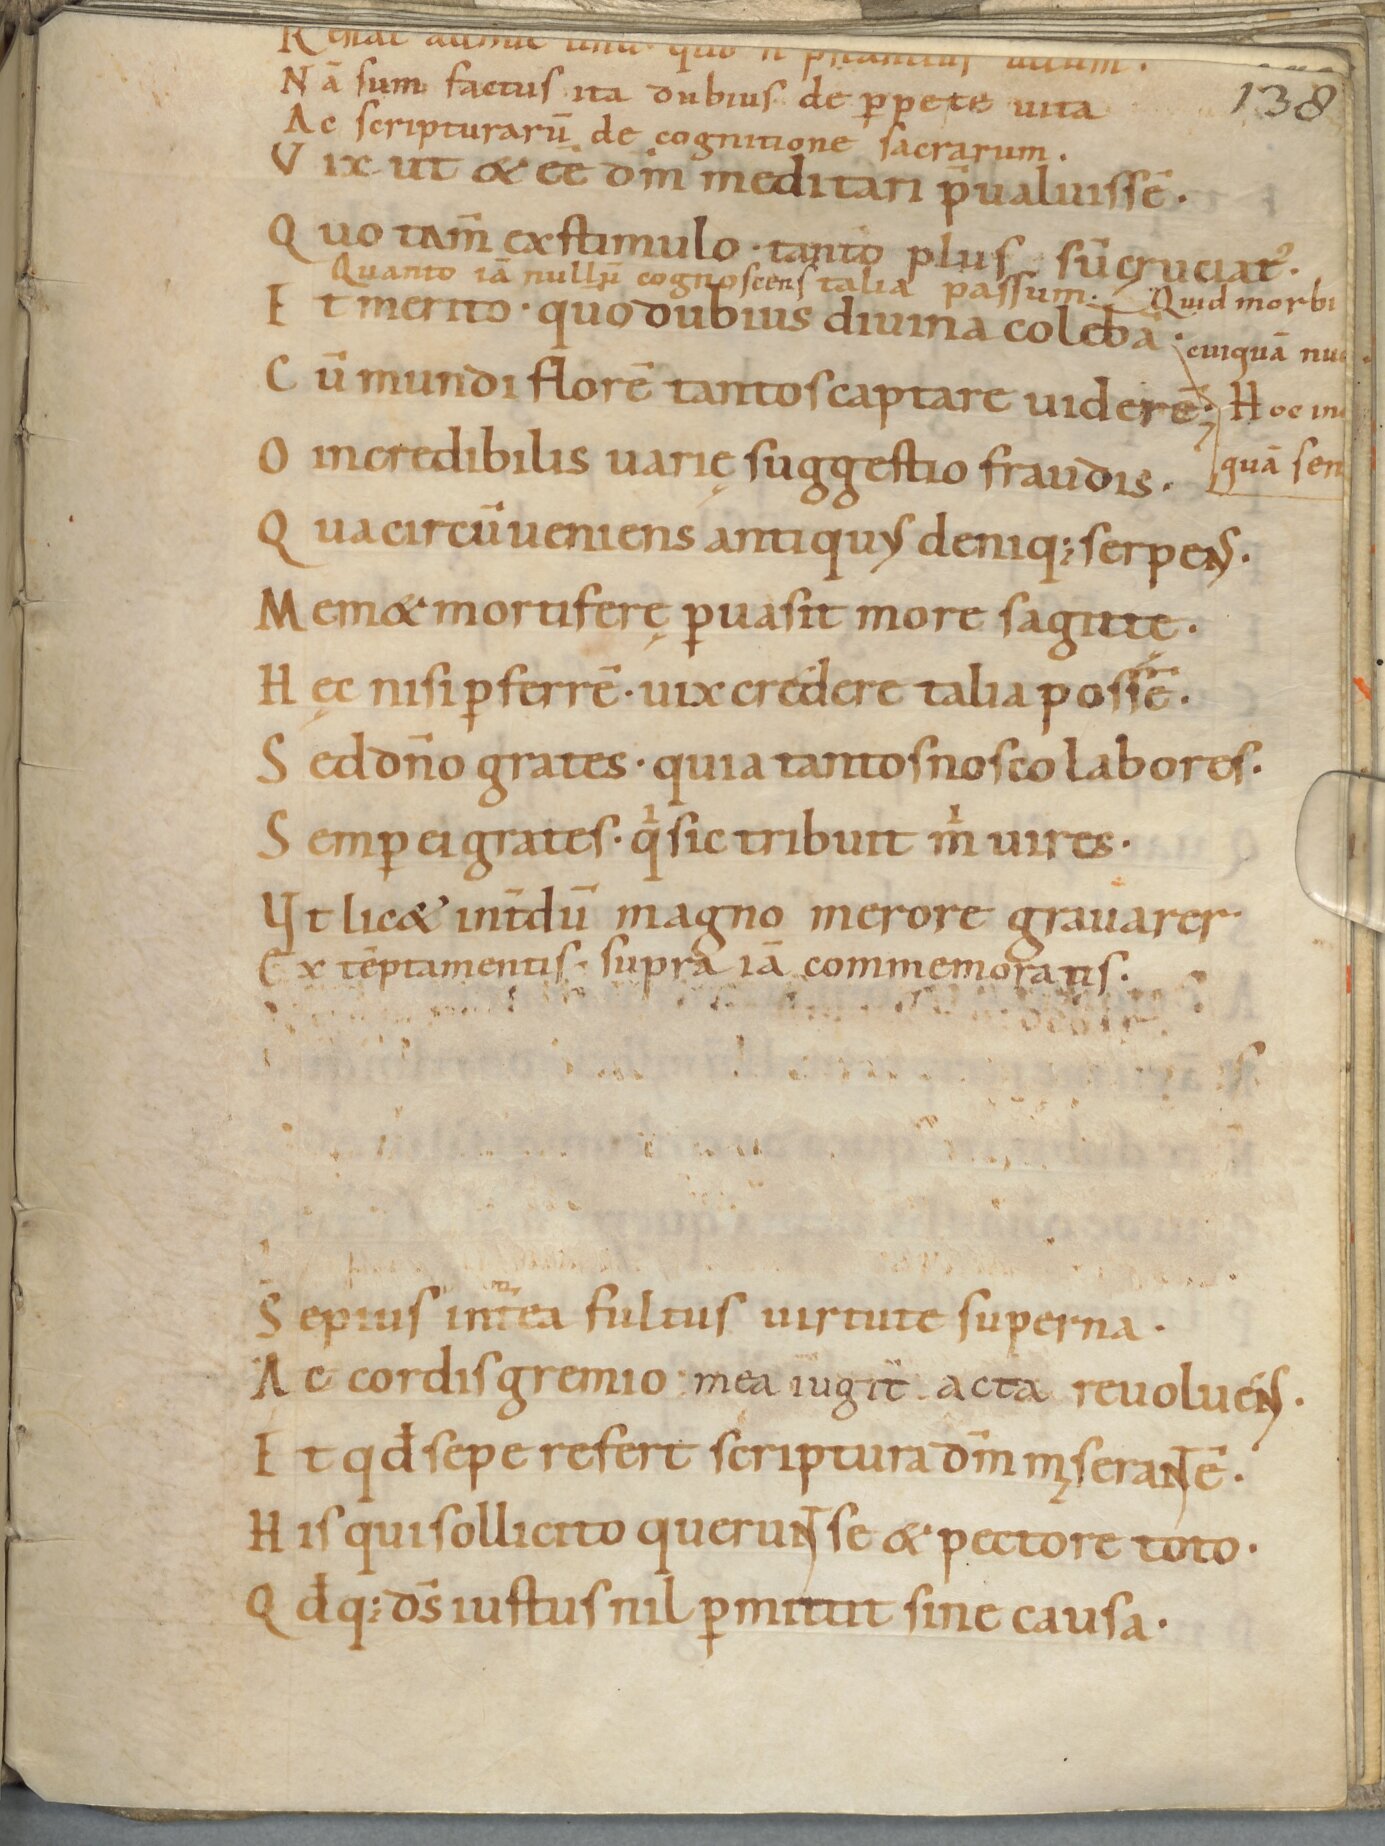 138
Nā sum factus ita dubius de ꝑpete uita
Ac scripturarū de cognitione sacrarum.
Vix ut & eē dm̄ meditari p̄ualuissē.
Quo tam̄ exstimulo · tanto plus sū cruciatꝰ.
Quanto iā nullū cognoscens talia passum.
Quid morbi
Et merito · quo dubius diuina colebā.
cuiquā
Cū mundi florē tantos captare uiderē.
Hoc
O incredibilis uarię suggestio fraudis.
quā
Qua circūueniens antiquus deniq; serpens.
Me m& mortiferę ꝑuasit more sagittę.
Hęc nisi ꝑferrē · uix credere talia possē.
Sed dn̄o grates · quia tantos nosco labores.
Semꝑ ei grates · qͥ sic tribuit mͥ uires.
Vt lic& int̄dū magno merore grauarer
Ex tēptamentis · supra iā commemoratis.
Sepius int̄ea fultus uirtute superna.
Ac cordis gremio mea iugit̄ acta reuoluens.
Et qđ sepe refert scriptura dm̄ miserantē.
His qui sollicito querunt se & pectore toto.
Qđq; ds̄ iustus nil ꝑmittit sine causa.